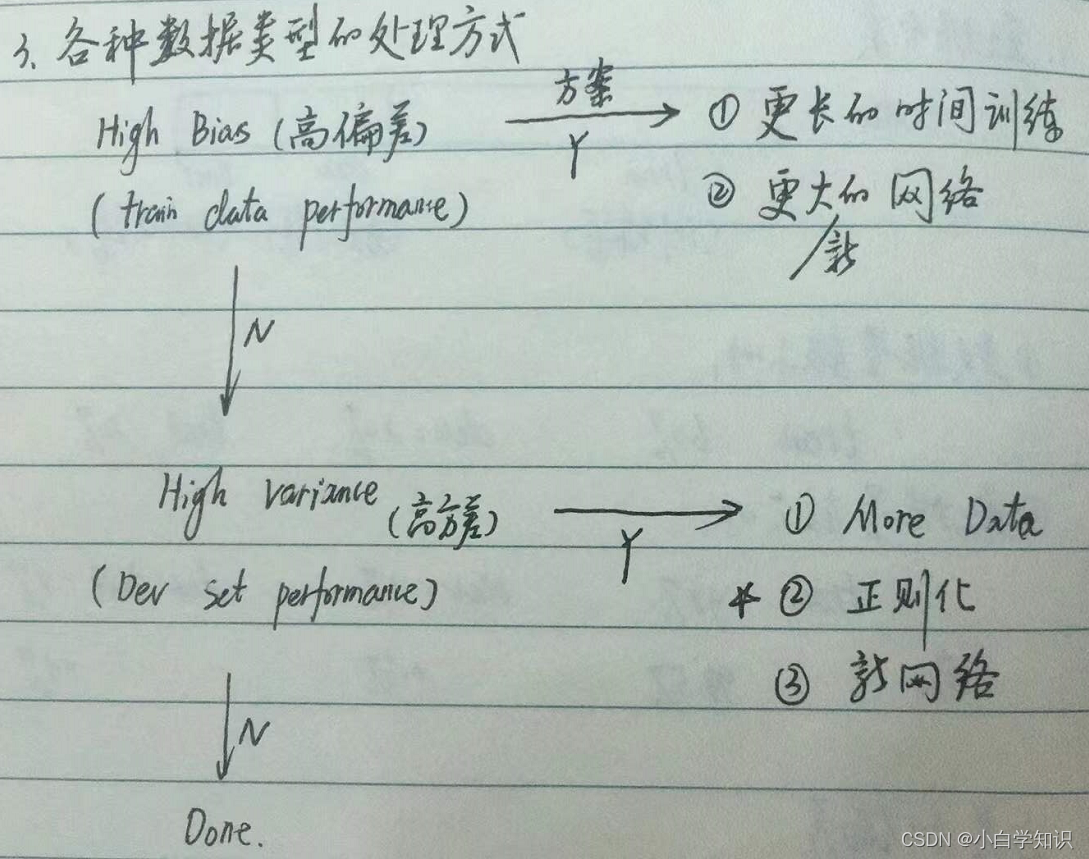 3、各种数据类型的处理方式
High Bias (高偏差) 方案 Y ① 更长的时间训练
(train data performance) ② 更大的网络
/新
N
High variance (高方差) Y ① More Data
(Dev set performance) * ② 正则化
③ 新网络
N
Done.
CSDN @小白学知识